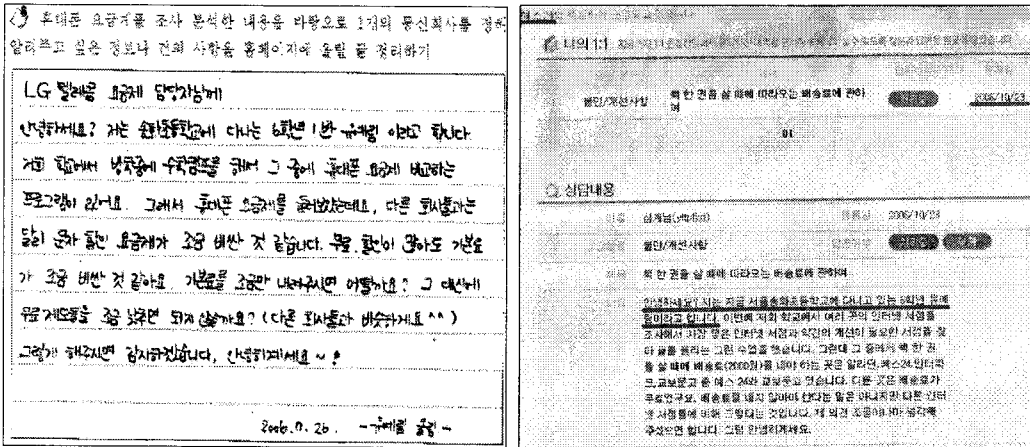 휴대폰 요금제를 조사 분석한 내용을 바탕으로 1개의 통신회사를 정해
알리고 싶은 정보나 건의 사항을 홈페이지에 올릴 글 정리하기
LG 텔레콤 요금제 담당자님께
안녕하세요? 저는 송화초등학교에 다니는 6학년 1반 유예림 이라고 합니다
저희 학교에서 방학중에 수학캠프를 해서 그 중에 휴대폰 요금제 비교하는
프로그램이 있어요. 그래서 휴대폰 요금제를 들어보았는데요, 다른 회사들과는
달리 문자 할인 요금제가 조금 비싼 것 같습니다. 무료 할인이 많아도 기본료
가 조금 비싼 것 같아요. 기본료를 조금만 내려주시면 어떨까요? 그 대신에
무료 제도들을 조금 낮추면 되지 않을까요? (다른 회사들과 비슷하게요 ^^)
그렇게 해주시면 감사하겠습니다, 안녕히계세요 ~ !
2006. 7. 26. - 유예림 올림 -
나의 1:1
불만/개선사항 책 한 권을 살 때에 따라오는 배송료에 관하
여 2006/10/23
01
상담내용
2006/10/23
불만/개선사항
책 한 권을 살 때에 따라오는 배송료에 관하여
안녕하세요? 저는 지금 서울송화초등학교에 다니고 있는 6학년 유예
림이라고 합니다. 이번에 저희 학교에서 여러 곳의 인터넷 서점를
조사해서 가장 좋은 인터넷 서점과 약간의 개선이 필요한 서점를 찾
아 글을 올리는 그런 수업을 했습니다. 그런데 그 중에서 책 한 권
을 살 때에 배송료(2000원)를 내야 하는 곳은 알라딘, 예스24, 인터파
크, 교보문고 중 예스 24와 교보문고 였습니다. 다른 곳은 배송료가
무료였구요. 배송료를 내지 않아야 한다는 말은 아니지만 다른 인터
넷 서점들에 비해 그렇다는 것입니다. 제 의견 조금이나마 생각해
주셨으면 합니다. 그럼 안녕히계세요.